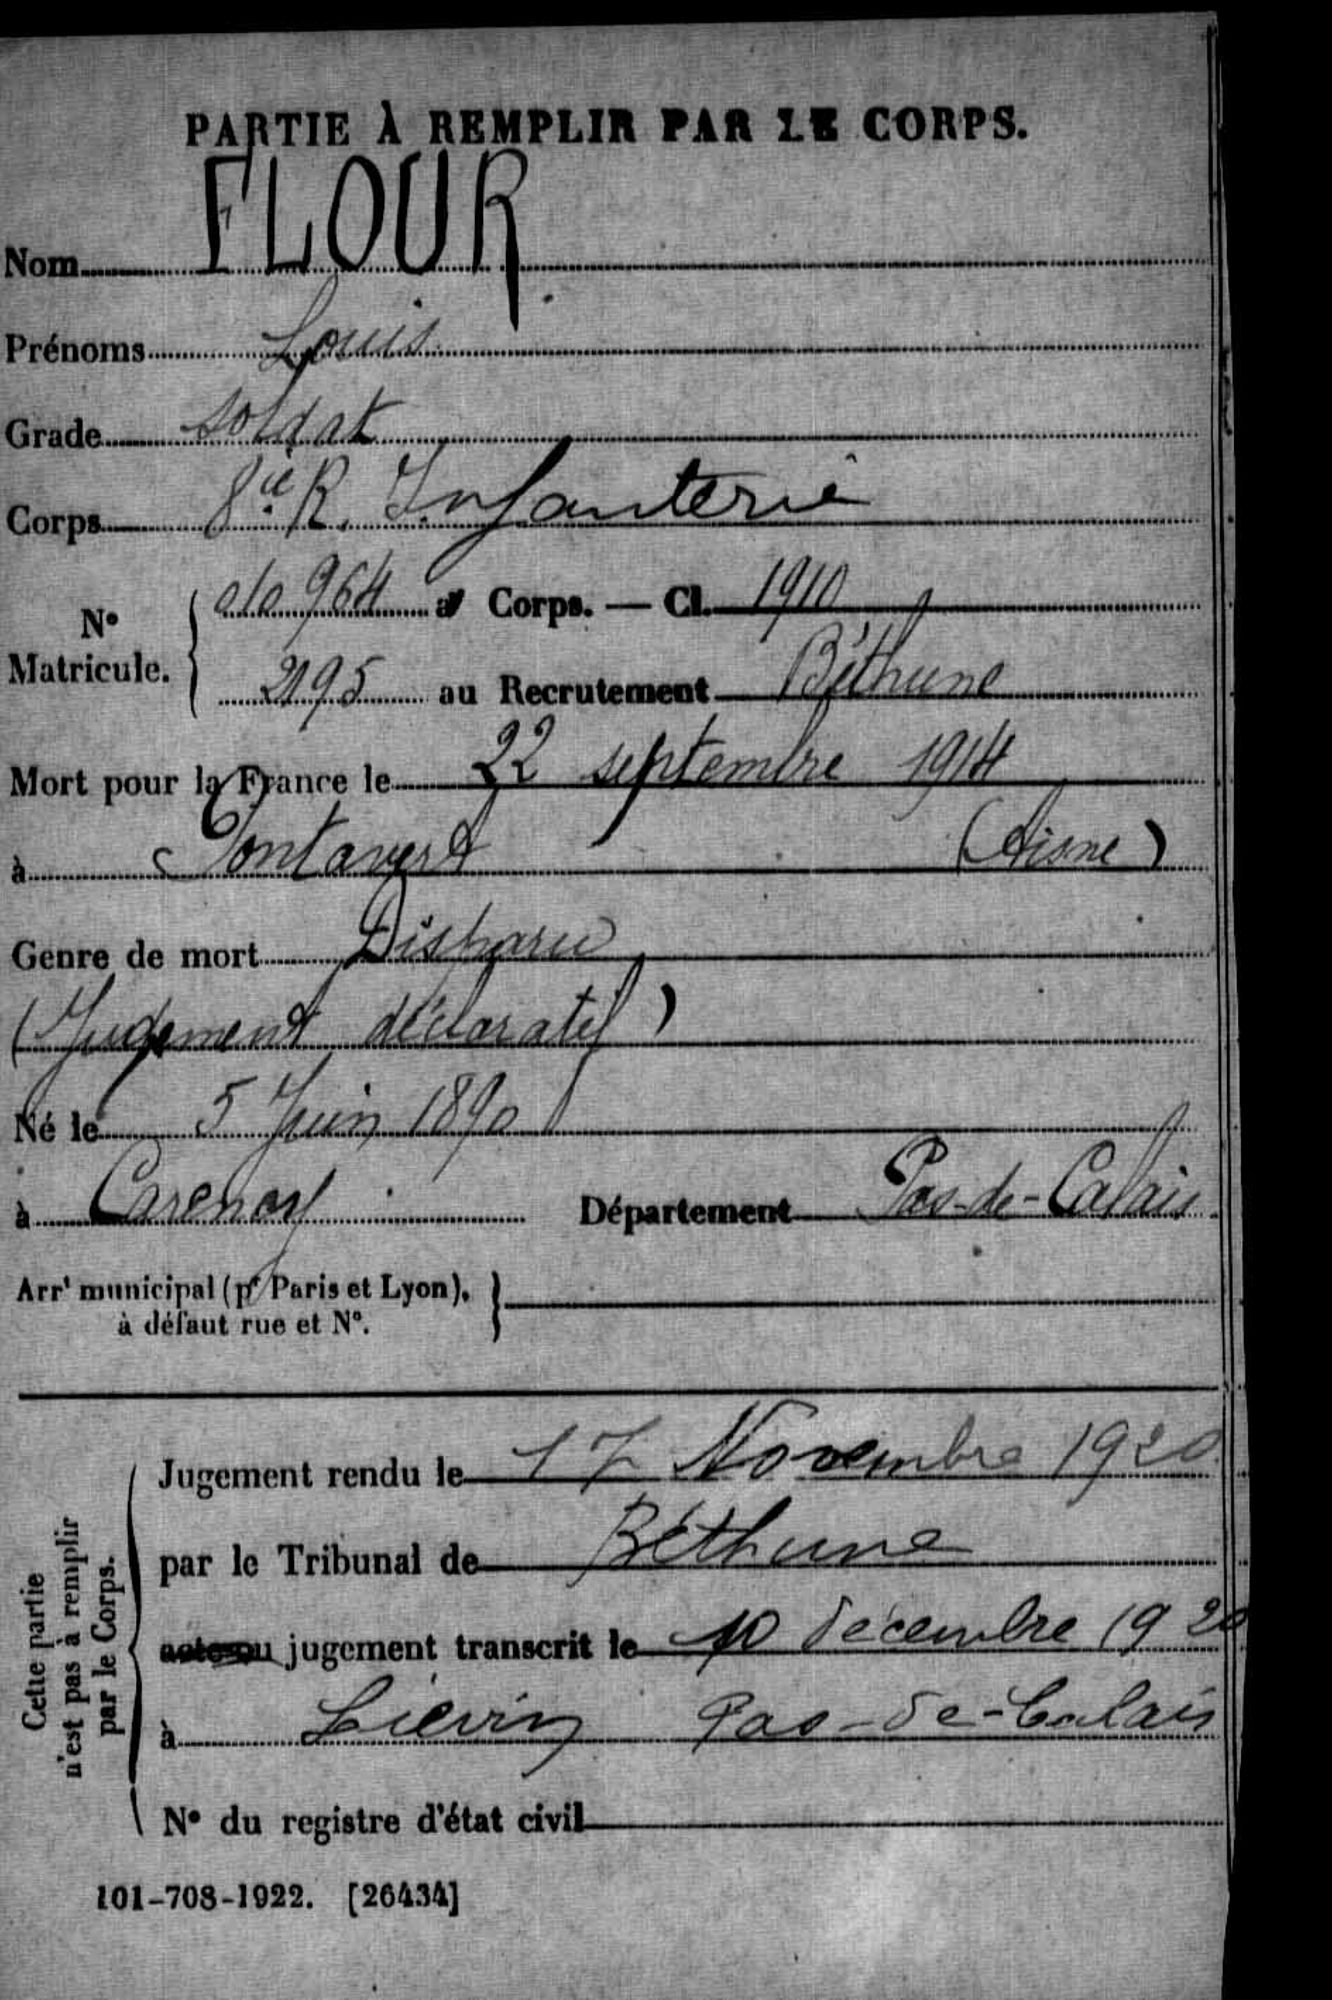 PARTIE À REMPLIR PAR LE CORPS.
Nom FLOUR
Prénoms Louis
Grade soldat
Corps 8e. R. Infanterie
N° Matricule. { 010964 au Corps. — Cl. 1910
2195 au Recrutement Béthune
Mort pour la France le 22 septembre 1914
à Pontavert (Aisne)
Genre de mort Disparu
(Jugement déclaratif)
Né le 5 Juin 1890
à Carency Département Pas-de-Calais
Arrt municipal (pr Paris et Lyon), }
à défaut rue et N°.
Cette partie
n'est pas à remplir
par le Corps.
Jugement rendu le 17 Novembre 1920
par le Tribunal de Béthune
acte ou jugement transcrit le 10 décembre 1920
à Liévin Pas-de-Calais
N° du registre d'état civil
101-708-1922. [26434]